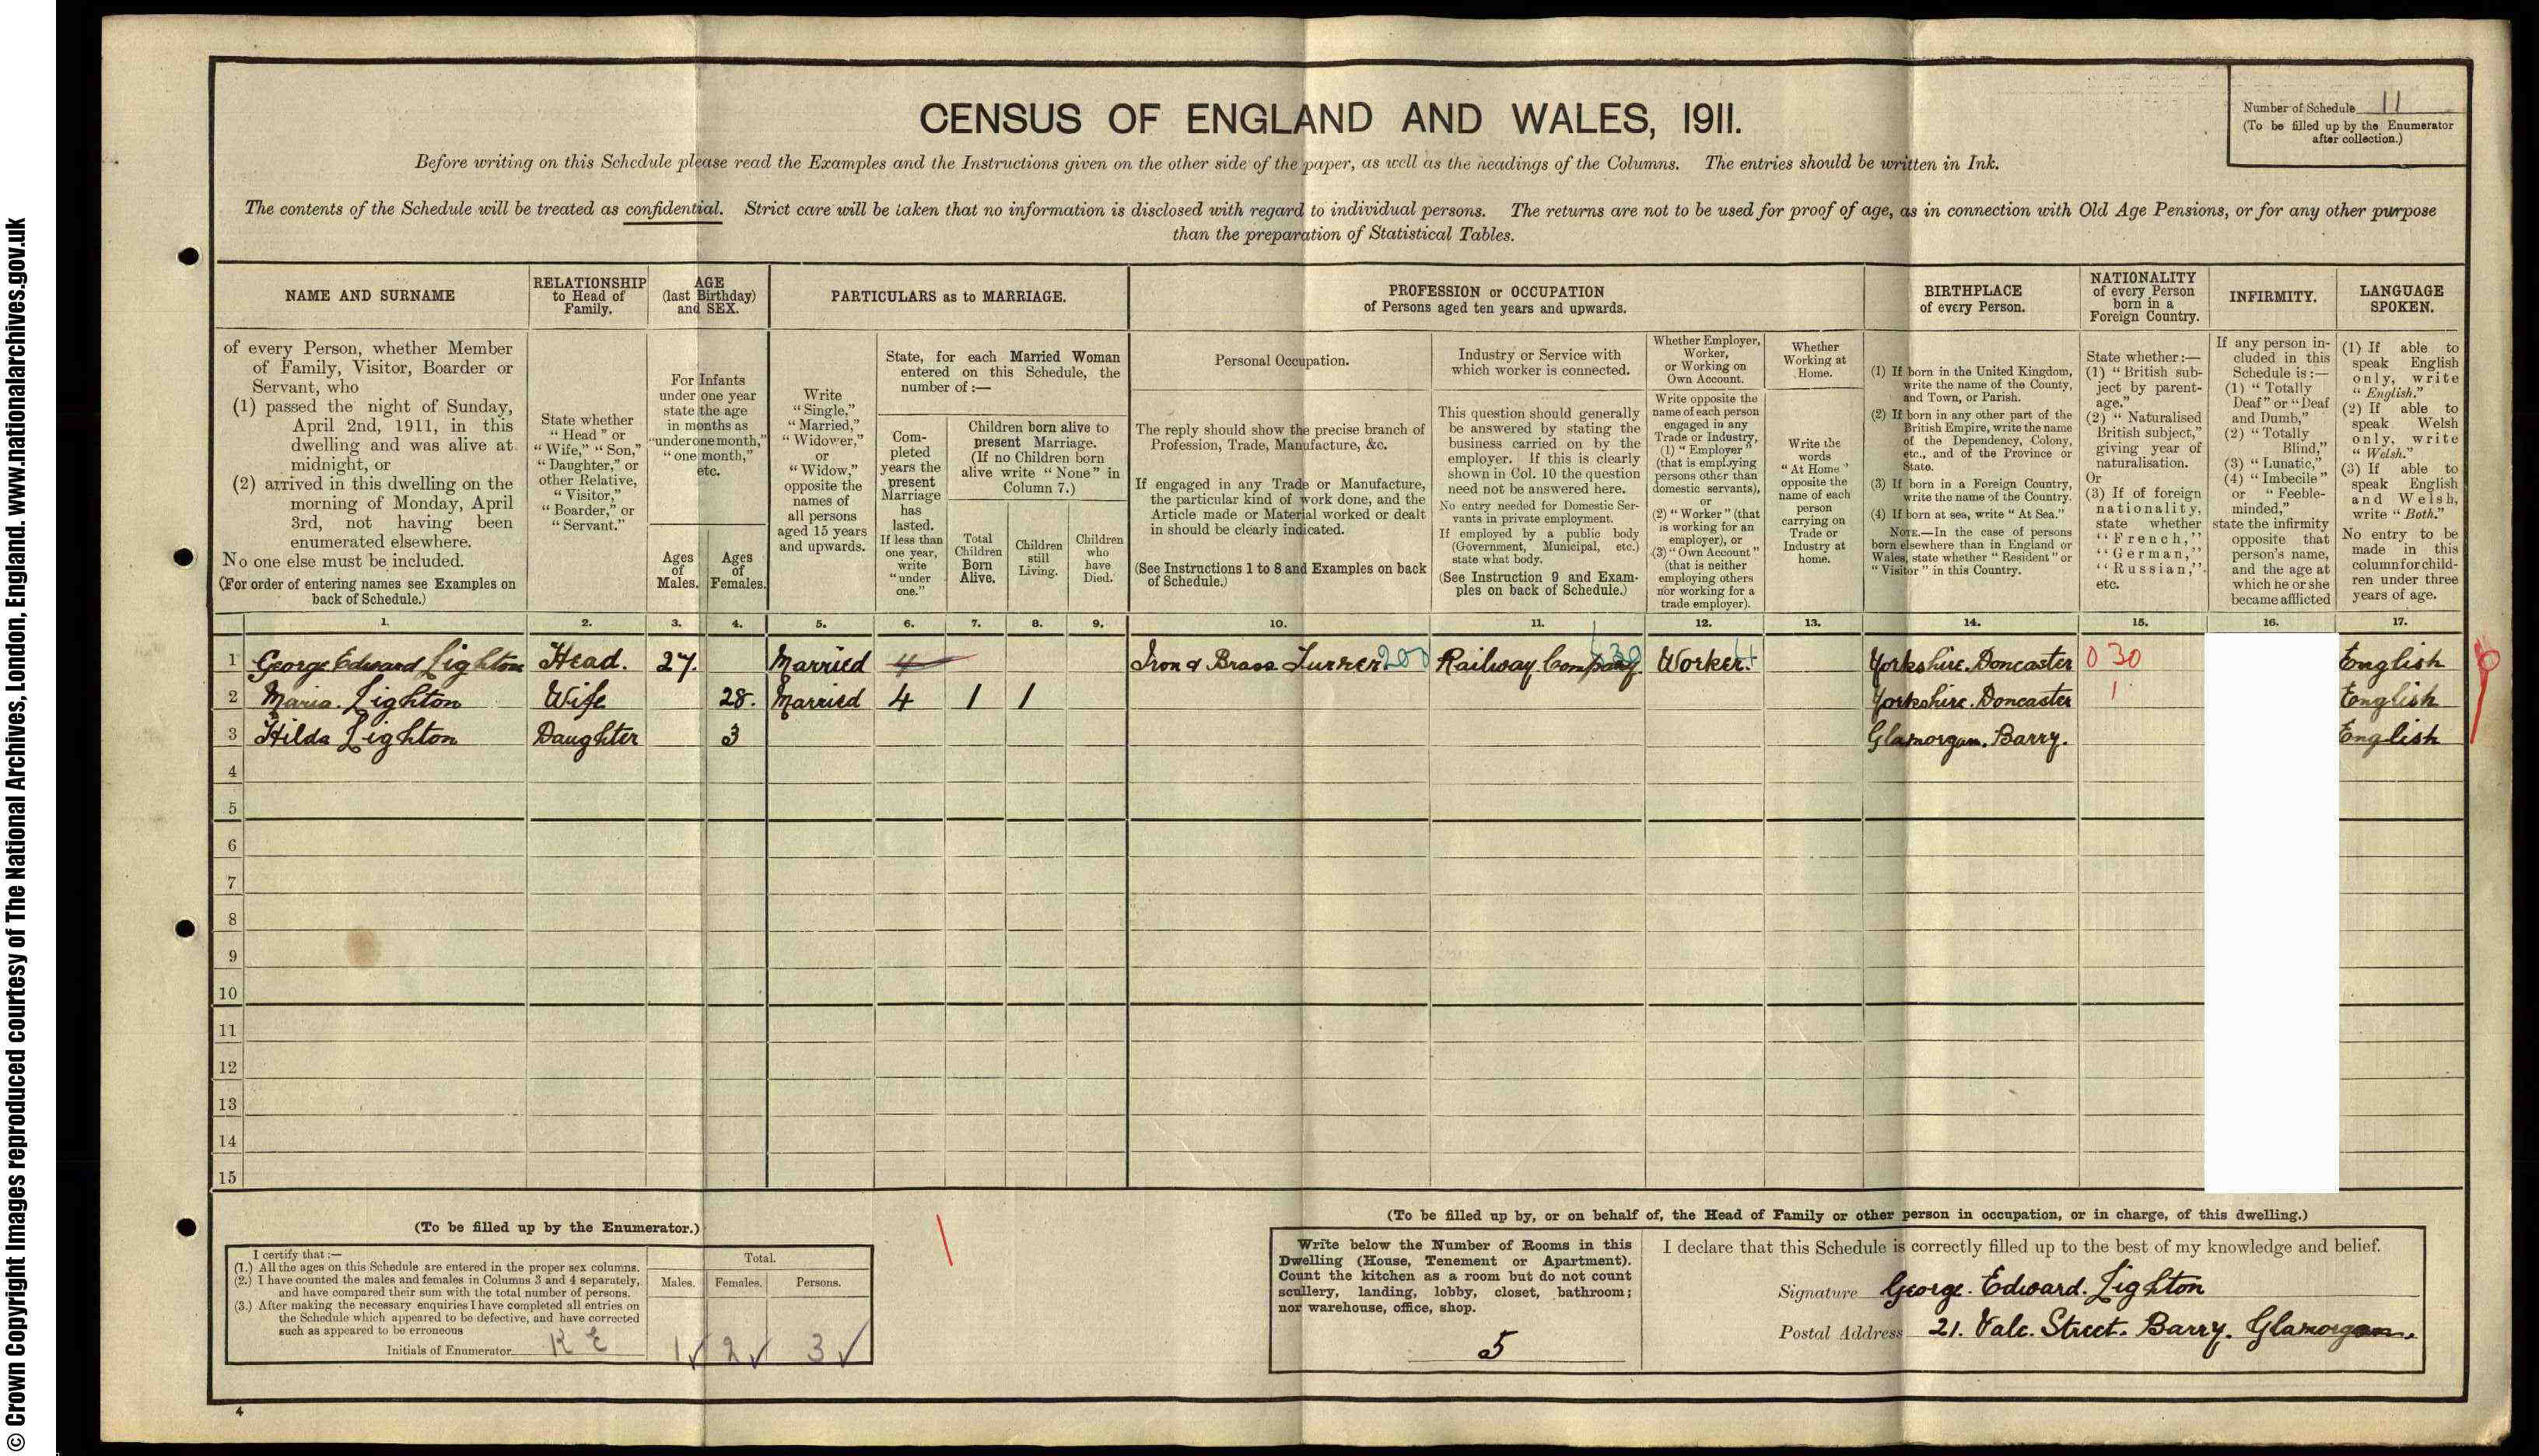 CENSUS OF ENGLAND AND WALES, 1911.
Number of Schedule 11
(To be filled up by the Enumerator
after collection.)
Before writing on this Schedule please read the Examples and the Instructions given on the other side of the paper, as well as the headings of the Columns. The entries should be written in Ink.
The contents of the Schedule will be treated as confidential. Strict care will be taken that no information is disclosed with regard to individual persons. The returns are not to be used for proof of age, as in connection with Old Age Pensions, or for any other purpose
than the preparation of Statistical Tables.
NAME AND SURNAME
of every Person, whether Member
of Family, Visitor, Boarder or
Servant, who
(1) passed the night of Sunday,
April 2nd, 1911, in this
dwelling and was alive at
midnight, or
(2) arrived in this dwelling on the
morning of Monday, April
3rd, not having been
enumerated elsewhere.
No one else must be included.
(For order of entering names see Examples on
back of Schedule.)
RELATIONSHIP
to Head of
Family.
State whether
"Head" or
"Wife," "Son,"
"Daughter," or
other Relative,
"Visitor,"
"Boarder," or
"Servant."
AGE
(last Birthday)
and SEX.
For Infants
under one year
state the age
in months as
"under one month,"
"one month,"
etc.
Ages
of
Males.
Ages
of
Females.
PARTICULARS as to MARRIAGE.
Write
"Single,"
"Married,"
"Widower,"
or
"Widow,"
opposite the
names of
all persons
aged 15 years
and upwards.
State, for each Married Woman
entered on this Schedule, the
number of :—
Com-
pleted
years the
present
Marriage
has
lasted.
If less than
one year,
write
"under
one."
Children born alive to
present Marriage.
(If no Children born
alive write "None" in
Column 7.)
Total
Children
Born
Alive.
Children
still
Living.
Children
who
have
Died.
PROFESSION or OCCUPATION
of Persons aged ten years and upwards.
Personal Occupation.
The reply should show the precise branch of
Profession, Trade, Manufacture, &c.
If engaged in any Trade or Manufacture,
the particular kind of work done, and the
Article made or Material worked or dealt
in should be clearly indicated.
(See Instructions 1 to 8 and Examples on back
of Schedule.)
Industry or Service with
which worker is connected.
This question should generally
be answered by stating the
business carried on by the
employer. If this is clearly
shown in Col. 10 the question
need not be answered here.
No entry needed for Domestic Ser-
vants in private employment.
If employed by a public body
(Government, Municipal, etc.)
state what body.
(See Instruction 9 and Exam-
ples on back of Schedule.)
Whether Employer,
Worker,
or Working on
Own Account.
Write opposite the
name of each person
engaged in any
Trade or Industry,
(1) "Employer"
(that is employing
persons other than
domestic servants),
or
(2) "Worker" (that
is working for an
employer), or
(3) "Own Account"
(that is neither
employing others
nor working for a
trade employer).
Whether
Working at
Home.
Write the
words
"At Home"
opposite the
name of each
person
carrying on
Trade or
Industry at
home.
BIRTHPLACE
of every Person.
(1) If born in the United Kingdom,
write the name of the County,
and Town, or Parish.
(2) If born in any other part of the
British Empire, write the name
of the Dependency, Colony,
etc., and of the Province or
State.
(3) If born in a Foreign Country,
write the name of the Country.
(4) If born at sea, write "At Sea."
NOTE.—In the case of persons
born elsewhere than in England or
Wales, state whether "Resident" or
"Visitor" in this Country.
NATIONALITY
of every Person
born in a
Foreign Country.
State whether :—
(1) "British sub-
ject by parent-
age."
(2) "Naturalised
British subject,"
giving year of
naturalisation.
Or
(3) If of foreign
nationality,
state whether
"French,"
"German,"
"Russian,"
etc.
INFIRMITY.
If any person in-
cluded in this
Schedule is :—
(1) "Totally
Deaf" or "Deaf
and Dumb,"
(2) "Totally
Blind,"
(3) "Lunatic,"
(4) "Imbecile"
or "Feeble-
minded,"
state the infirmity
opposite that
person's name,
and the age at
which he or she
became afflicted
LANGUAGE
SPOKEN.
(1) If able to
speak English
only, write
"English."
(2) If able to
speak Welsh
only, write
"Welsh."
(3) If able to
speak English
and Welsh,
write "Both."
No entry to be
made in this
column for child-
ren under three
years of age.
1. 2. 3. 4. 5. 6. 7. 8. 9. 10. 11. 12. 13. 14. 15. 16. 17.
1 George Edward Lighton Head. 27. Married 4 Iron & Brass Turner 200 Railway Company Worker. Yorkshire. Doncaster 0 30 English
2 Maria. Lighton Wife 28. Married 4 1 1 Yorkshire. Doncaster 1 English
3 Hilda Lighton Daughter 3 Glamorgan. Barry. English
4
5
6
7
8
9
10
11
12
13
14
15
(To be filled up by the Enumerator.)
I certify that :—
(1.) All the ages on this Schedule are entered in the proper sex columns.
(2.) I have counted the males and females in Columns 3 and 4 separately,
and have compared their sum with the total number of persons.
(3.) After making the necessary enquiries I have completed all entries on
the Schedule which appeared to be defective, and have corrected
such as appeared to be erroneous
Initials of Enumerator R E
Total.
Males. Females. Persons.
1 2 3
(To be filled up by, or on behalf of, the Head of Family or other person in occupation, or in charge, of this dwelling.)
Write below the Number of Rooms in this
Dwelling (House, Tenement or Apartment).
Count the kitchen as a room but do not count
scullery, landing, lobby, closet, bathroom;
nor warehouse, office, shop.
5
I declare that this Schedule is correctly filled up to the best of my knowledge and belief.
Signature George. Edward. Lighton
Postal Address 21. Vale. Street. Barry. Glamorgan.
4
© Crown Copyright Images reproduced courtesy of The National Archives, London, England. www.nationalarchives.gov.uk